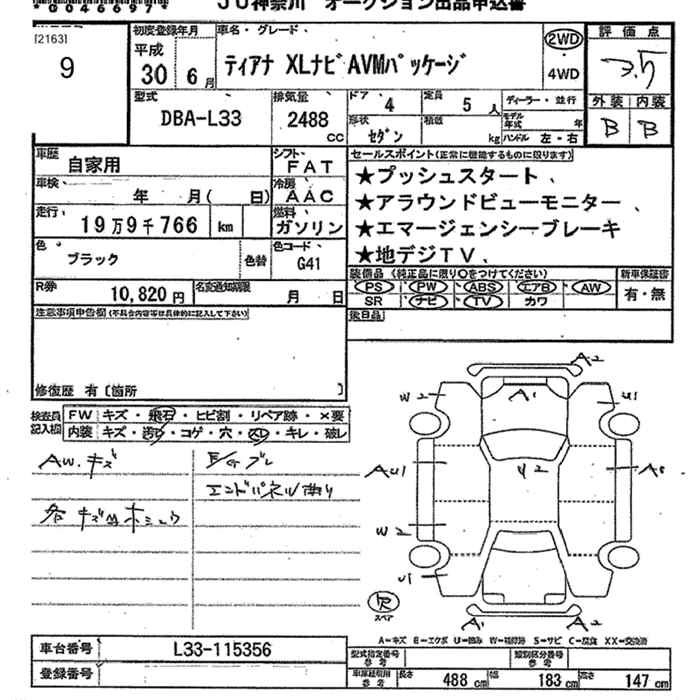 *0046697*
JU神奈川 オークション出品申込書
[2163]
9
初度登録年月
平成
30 6月
車名・グレード
ティアナ XLナビAVMパッケージ
2WD
4WD
評価点
3.5
外装 内装
B B
型式
DBA-L33
排気量
2488
CC
ドア
4
定員
5 人
ディーラー・並行
形状
セダン
積載
kg
モデル年式 年
ハンドル 左・右
車歴 自家用
シフト FAT
車検 年 月( 日)
冷房 AAC
走行 19万9千766 km
燃料 ガソリン
色 ブラック
色替
色コード G41
R券 10,820円
名変通知期限 月 日
セールスポイント(正常に機能するものに限ります)
★プッシュスタート
★アラウンドビューモニター
★エマージェンシーブレーキ
★地デジTV
装備品(純正品に限り○をつけてください)
新車保証書
PS PW ABS エアB AW
SR ナビ TV カワ
有・無
後日品
注意事項申告欄(不具合内容等は具体的に記入して下さい)
修復歴 有〔箇所 〕
検査員記入欄
FW キズ・飛石・ヒビ割・リペア跡・×要
内装 キズ・汚れ・コゲ・穴・スレ・キレ・破レ
AW.キズ
E/Gブレ
エンドパネル曲り
各 キズ凹
A2
W2
A1
U1
AU1
W2
A
W2
U1
A1
A2
スペア
A=キズ E=エクボ U=凹み W=補修跡 S=サビ C=腐食 XX=交換済
車台番号 L33-115356
登録番号
型式指定番号 参考
類別区分番号 参考
車庫証明用 参考
長さ 488cm 幅 183cm 高さ 147cm